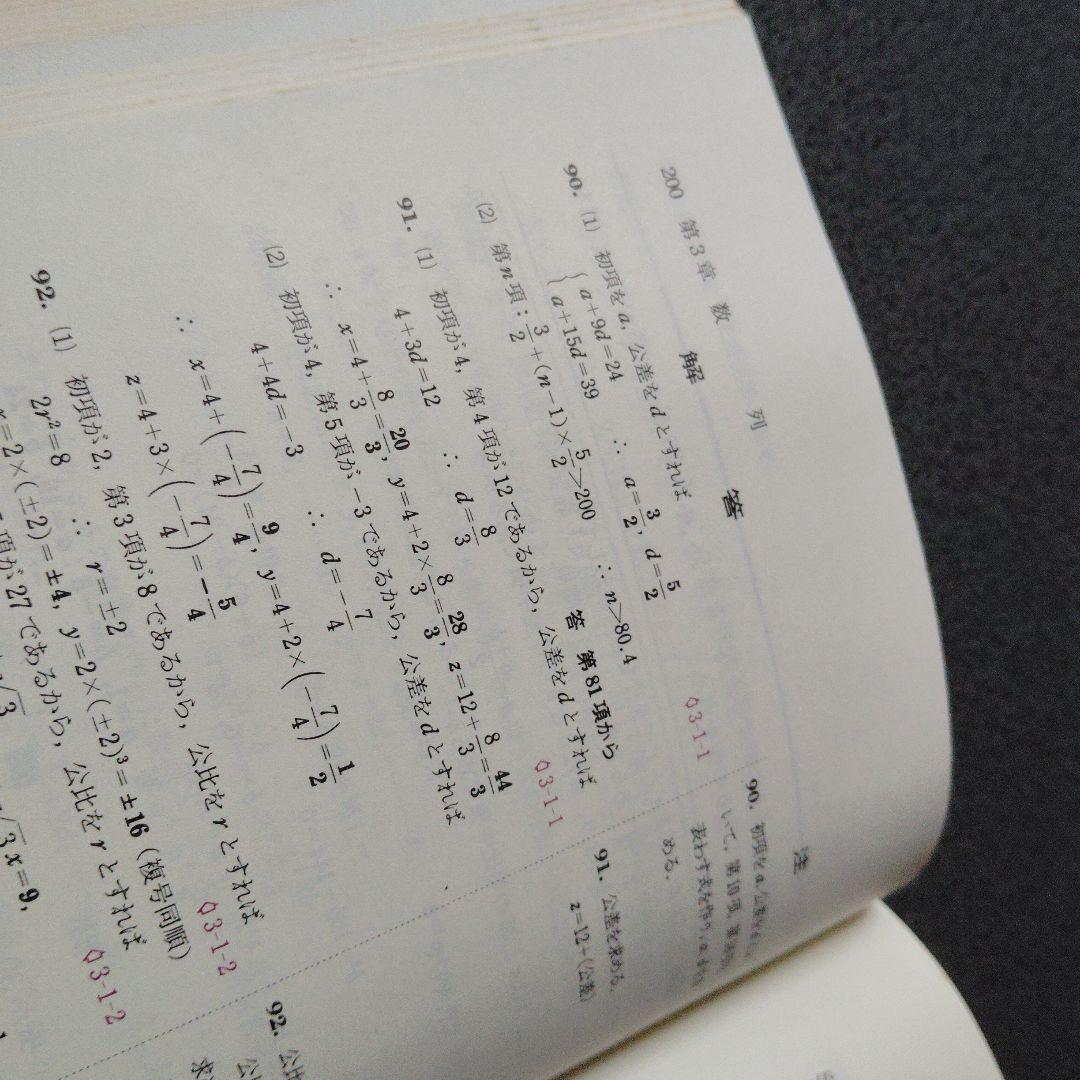 200 第3章 数 列
解 答
90. (1) 初項をa, 公差をdとすれば
{a+9d=24
{a+15d=39 ∴ a=3/2, d=5/2
◊3-1-1
(2) 第n項:3/2+(n−1)×5/2>200 ∴ n>80.4
答 第81項から
91. (1) 初項が4, 第4項が12であるから, 公差をdとすれば
◊3-1-1
4+3d=12 ∴ d=8/3
∴ x=4+8/3=20/3, y=4+2×8/3=28/3, z=12+8/3=44/3
(2) 初項が4, 第5項が−3であるから, 公差をdとすれば
4+4d=−3 ∴ d=−7/4
∴ x=4+(−7/4)=9/4, y=4+2×(−7/4)=1/2
z=4+3×(−7/4)=−5/4
92. (1) 初項が2, 第3項が8であるから, 公比をrとすれば
◊3-1-2
2r²=8 ∴ r=±2
x=2×(±2)=±4, y=2×(±2)³=±16 (複号同順)
項が27であるから, 公比をrとすれば
◊3-1-2
√3 x=9,
注
90. 初項をa, 公差を
いて, 第10項, 第
表わす式を作り,
める.
91. 公差を求める.
z=12+(公差)
92. 公比
公
求